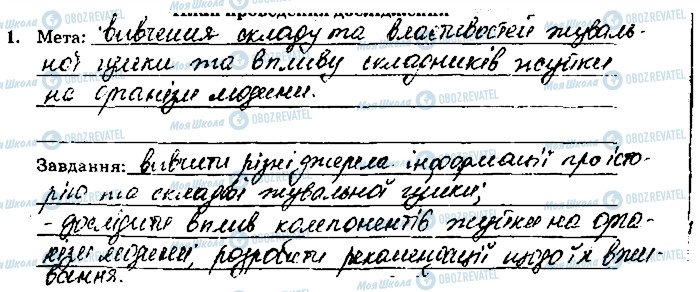 План проведення дослідження
1. Мета: вивчення складу та властивостей жуваль-
ної гумки та впливу складників жуйки
на організм людини.
Завдання: вивчити різні джерела інформації про істо-
рію та складові жувальної гумки;
- дослідити вплив компонентів жуйки на орга-
нізм людини, розробити рекомендації щодо їх вжи-
вання.